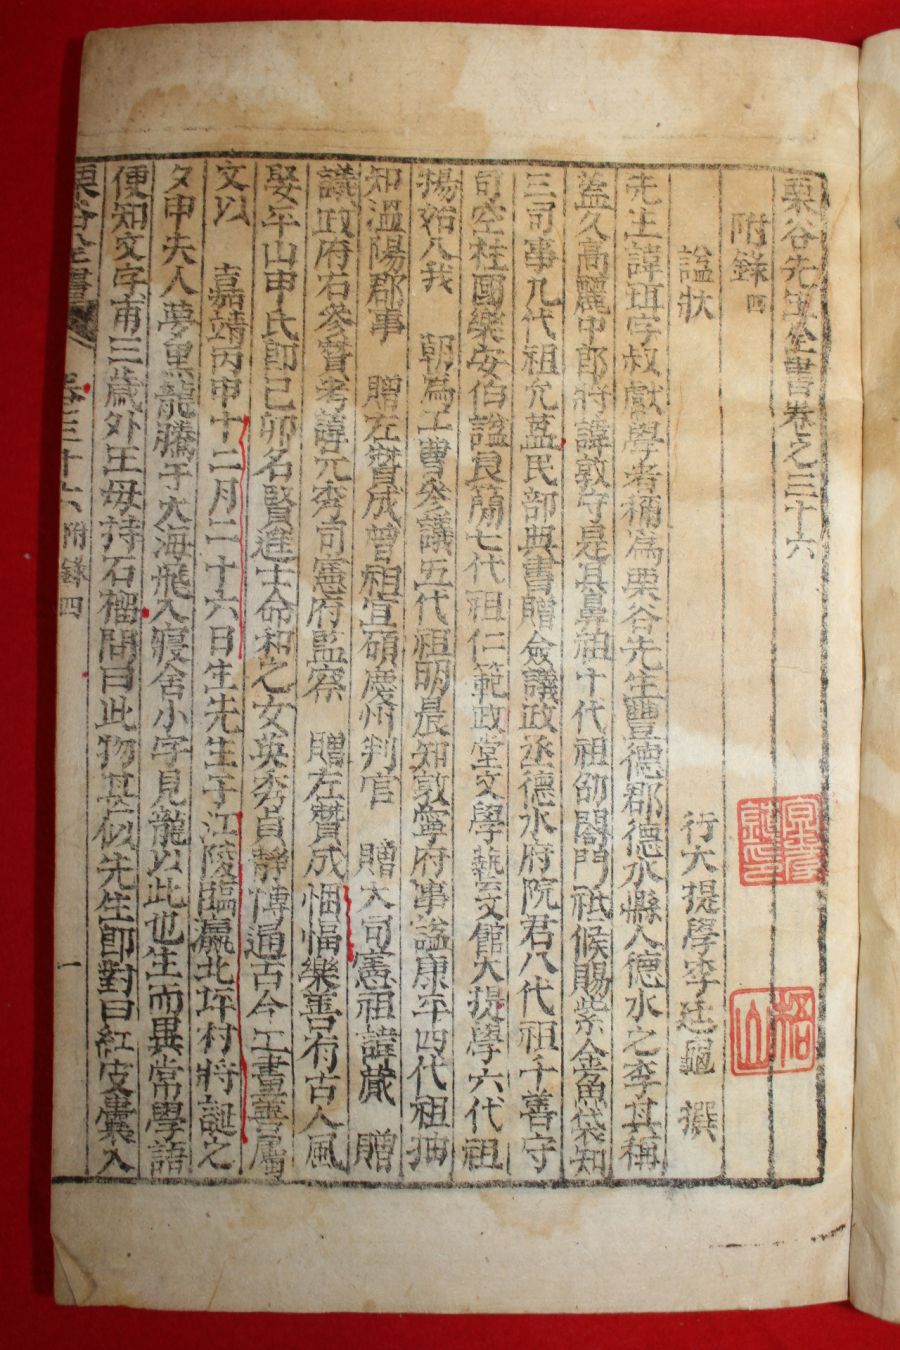 栗谷先生全書卷之三十六
附錄 四
諡狀
行大提學李廷龜 撰
先生諱珥字叔獻學者稱爲栗谷先生豐德郡德水縣人德水之李其稱
蓋久高麗中郞將諱敦守是其鼻祖十代祖卲閤門祗候賜紫金魚袋知
三司事九代祖允蒀民部典書贈僉議政丞德水府院君八代祖千善守
司空柱國樂安伯諡良簡七代祖仁範政堂文學藝文館大提學六代祖
揚始入我 朝爲工曹參議五代祖明晨知敦寧府事諡康平四代祖抽
知溫陽郡事 贈左贊成曾祖宜碩慶州判官 贈大司憲祖諱蕆 贈
議政府右參贊考諱元秀司憲府監察 贈左贊成悃愊樂善有古人風
娶平山申氏卽己卯名賢進士命和之女英秀貞靜博通古今工書畫善屬
文以 嘉靖丙申十二月二十六日生先生于江陵臨瀛北坪村將誕之
夕申夫人夢黑龍騰于大海飛入寢舍小字見龍以此也生而異常學語
便知文字甫三歲外王母持石榴問曰此物甚似先生卽對曰紅皮囊入
栗谷全書 卷三十六 附錄四 一
梧山